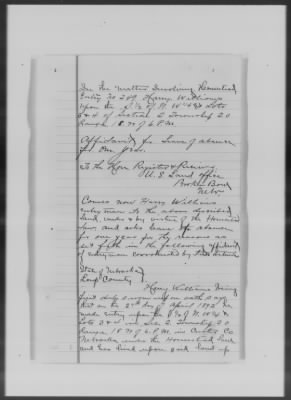 In the Matter Involving Homestead
Entry No 209 Harry Williams
upon the S½ of N.W¼ & Lots
3 & 4 of Section 2 Township 20
Range 18 W of 6 P.M.
Affidavit for Leave of absence
for One Year.
To the Hon Register & Receiver
U.S. Land office
Broken Bow
Nebr
Comes now Harry Williams
entryman to the above described
land, under & by virtue of the Homestead
law, and asks leave of absence
for one year for the reasons as
set fifth in the following affidavit
of entryman corroborated by two
State of Nebraska
Loup County
Harry Williams being
first duly sworn on oath says
that on the day of April 1892 he
made entry upon the S½ of N.W¼ &
Lots 3 & 4 in Sec 2 Township 20
Range 18 W of 6 P.M. in Custer Co
Nebraska under the Homestead law
and has lived upon said land up